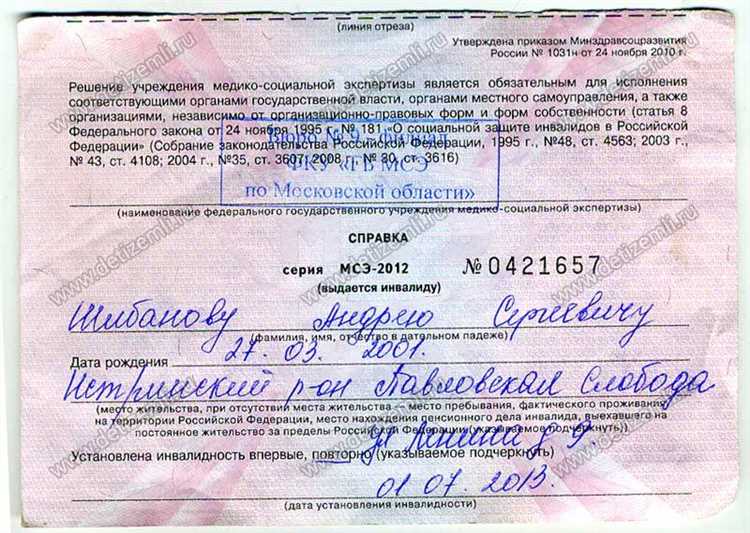 (линия отреза)
Утверждена приказом Минздравсоцразвития
России № 1031н от 24 ноября 2010 г.
Решение учреждения медико-социальной экспертизы является обязательным для исполнения
соответствующими органами государственной власти, органами местного самоуправления, а также
организациями, независимо от организационно-правовых форм и форм собственности (статья 8
Федерального закона от 24 ноября 1995 г. № 181 «О социальной защите инвалидов в Российской
Федерации» (Собрание законодательства Российской Федерации, 1995 г., №48, ст. 4563; 2003 г.,
№ 43, ст. 4108; 2004 г., №35, ст. 3607; 2008 г., № 30, ст. 3616)
Бюро № 9 - филиал
ФКУ «ГБ МСЭ
по Московской области»
(наименование федерального государственного учреждения медико-социальной экспертизы)
СПРАВКА
серия МСЭ-2012 № 0421657
(выдается инвалиду)
Шибанову Андрею Сергеевичу
(фамилия, имя, отчество в дательном падеже)
Дата рождения 27. 03. 2001.
Истринский р-он Павловская Слобода
(место жительства, при отсутствии места жительства – место пребывания, фактического проживания
на территории Российской Федерации, место нахождения пенсионного дела инвалида, выехавшего на
постоянное жительство за пределы Российской Федерации (указываемое подчеркнуть))
ул Ленина д 9.
Установлена инвалидность впервые, повторно (указываемое подчеркнуть)
01 07. 2013.
(дата установления инвалидности)
www.detizemli.ru